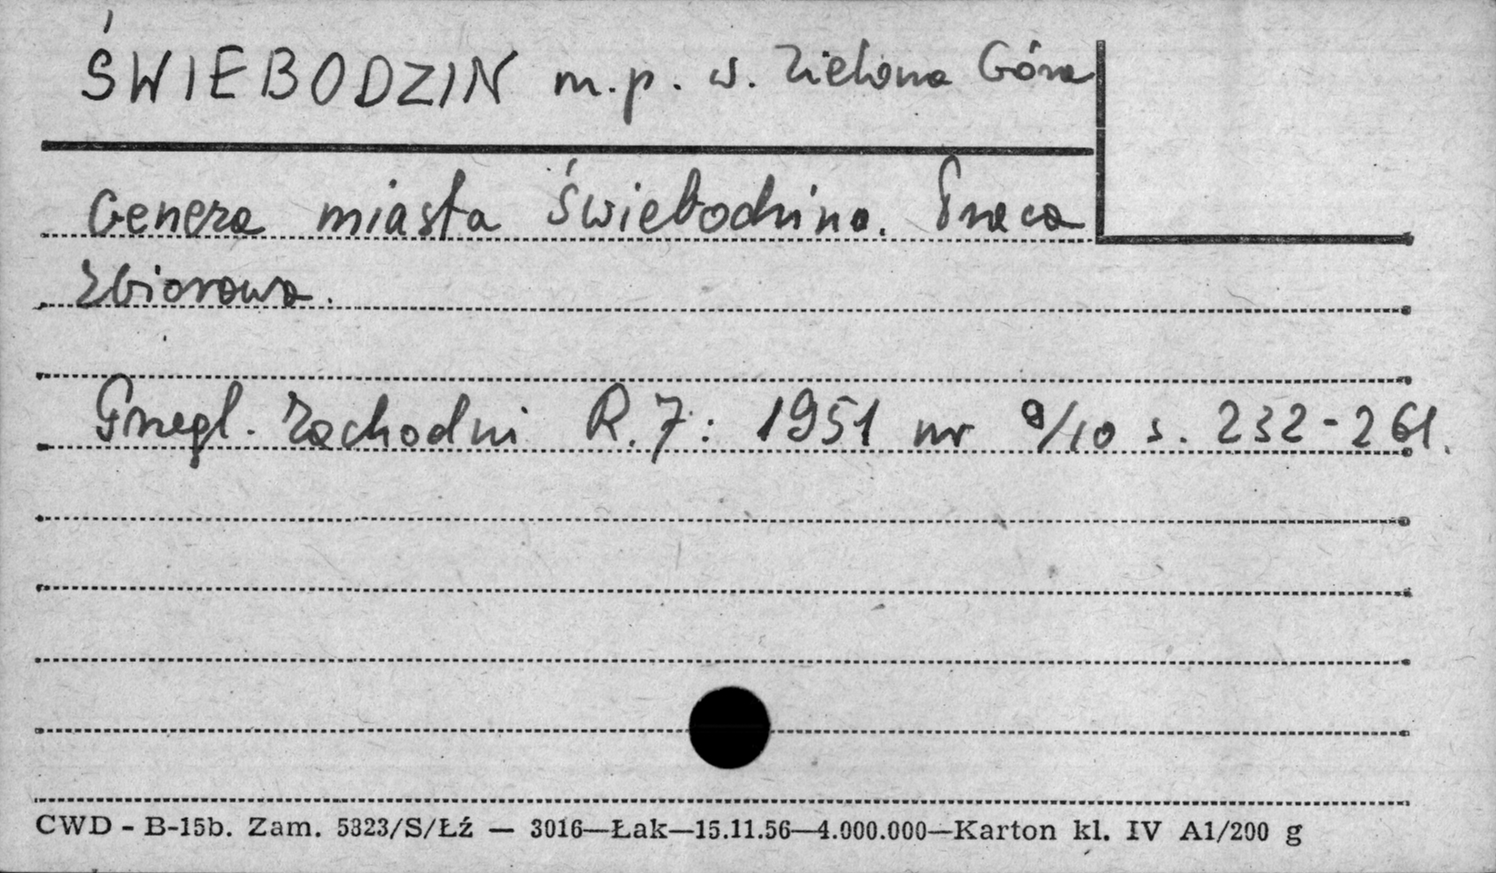 ŚWIEBODZIN m.p. w. Zielona Góra
Geneza miasta Świebodzina. Praca
zbiorowa.
Przegl. Zachodni R.7: 1951 nr 9/10 s. 232-261.
CWD - B-15b. Zam. 5323/S/Łź — 3016—Łak—15.11.56—4.000.000—Karton kl. IV A1/200 g